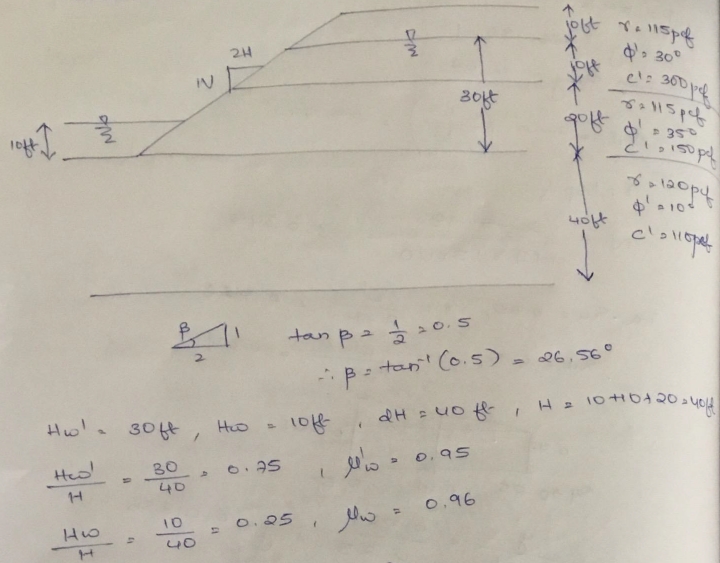 10ft
r = 115pcf
2H
φ' = 30°
1V
10ft
c' = 300pcf
30ft
r = 115pcf
10ft
20ft
φ' = 35°
c' = 150pcf
r = 120pcf
φ' = 10°
40ft
c' = 110pcf
β
1
2
tan β = 1/2 = 0.5
∴ β = tan⁻¹ (0.5) = 26.56°
Hw' = 30ft, Hw = 10ft, dH = 40 ft, H = 10+10+20=40ft
Hw'/H = 30/40 = 0.75, μ'w = 0.95
Hw/H = 10/40 = 0.25, μw = 0.96